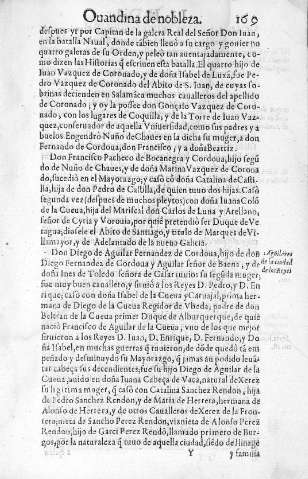 Ouandina de nobleza. 169
despues yr por Capitan de la galera Real del Señor Don Iuan,
en la batalla Naual, donde tābien lleuò a su cargo y gouierno
quatro galeras de su Orden, y peleò tan auentajadamente, co-
mo dizen las Historias q̄ escriuen esta batalla. El quarto hijo de
Iuan Vazquez de Coronado, y de doña Isabel de Luxā, fue Pe-
dro Vazquez de Coronado del Abito de S. Iuan, de cuyas so-
brinas decienden en Salamāca muchos caualleros del apellido
de Coronado; y oy la possee don Gonçalo Vazquez de Coro-
nado, con los lugares de Coquilla, y de la Torre de Iuan Vaz-
quez, conseruador de aquella Vniuersidad, como sus padres y a
buelos Engendrò Nuño de Chaues en la dicha su muger, a don
Fernando de Cordoua, don Francisco, y a doña Beatriz.
Don Francisco Pacheco de Bocanegra y Cordoua, hijo segū
do de Nuño de Chaues, y de doña Marina Vazquez de Corona
do, sucedio en el Mayorazgo, y casò cō doña Catalina de Casti-
lla, hija de don Pedro de Castilla, de quien tuuo dos hijas. Casò
segunda vez (despues de muchos pleytos) con doña Iuana Colō
de la Cueua, hija del Mariscal don Carlos de Luna y Arellano,
señor de Cyria y Boronia, por quié pretendiò ser Duque de Ve-
ragua, diosele el Abito de Santiago, y titulo de Marques de Vi-
llamayor, y de Adelantado de la nueua Galicia.
Don Diego de Aguilar Fernandez de Cordoua, hijo de don
Diego Fernandez de Cordoua y Aguilar señor de Baena, y de
doña Ines de Toledo señora de Casarrubios su segūda muger,
fue muy buen cauallero, y siruiò a los Reyes D. Pedro, y D. En
rique; casò con doña Isabel de la Cueua y Caruajal, prima her-
mana de Diego de la Cueua Regidor de Vbeda, padre de don
Beltran de la Cueua primer Duque de Alburquerque, de quie
naciò Francisco de Aguilar de la Cueua, vno de los que mejor
siruieron a los Reyes D. Iuan, D. Enrique, D. Fernando, y Do
ña Isabel, en muchas guerras q̄ tuuieron, de dōde quedò tā em
peñado y destruydo su Mayorazgo, q̄ jamas an podido leuā-
tar cabeça sus decendientes, fue su hijo Diego de Aguilar de la
Cueua, auido en doña Iuana Cabeça de Vaca, natural de Xerez
su ligitima muger, q̄ casò con Catalina Sanchez Rendon, hija
de Pedro Sanchez Rendon, y de Maria de Herrera, hermana de
Alonso de Herrera, y de otros Caualleros de Xerez de la Fron-
tera, nieta de Sancho Perez Rendon, visnieta de Alonso Perez
Rendon, hijo de Garci Perez Rendō, llamado primero de Bur-
gos, por la naturaleza q̄ tuuo de aquella ciudad, siēdo de linage
Y y familia